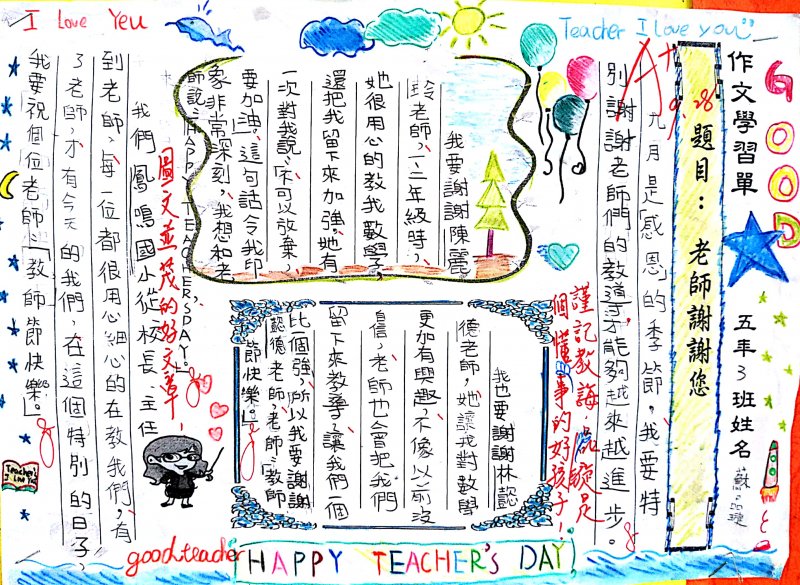 I Love You
Teacher I love you
GOOD
作文學習單
五年3班姓名
蘇品璇
題目:老師謝謝您
A+
9.28
九月是「感恩」的季節,我要特
別謝謝老師們的教導才能夠越來越進步。
我要謝謝陳麗
玲老師,一、二年級時,
她很用心的教我數學,
還把我留下來加強,她有
一次對我說:「不可以放棄,
要加油」這句話令我印
象非常深刻,我想和老
師說:「HAPPY TEACHER'S DAY。」
我也要謝謝林懿
德老師,她讓我對數學
更加有興趣,不像以前沒
自信,老師也會把我們
留下來教學,讓我們一個
比個強,所以我要謝謝
懿德老師,老師:「教師
節快樂。」
我們鳳鳴國小從校長、主任
到老師,每一位都很用心細心的在教我們,有
了老師,才有今天的我們,在這個特別的日子,
我要祝個位老師:「教師節快樂。」
謹記教誨,品璇是
個懂事的好孩子!
圖文並茂的好文章!
Teacher's
I Love You
good teacher
HAPPY TEACHER'S DAY!